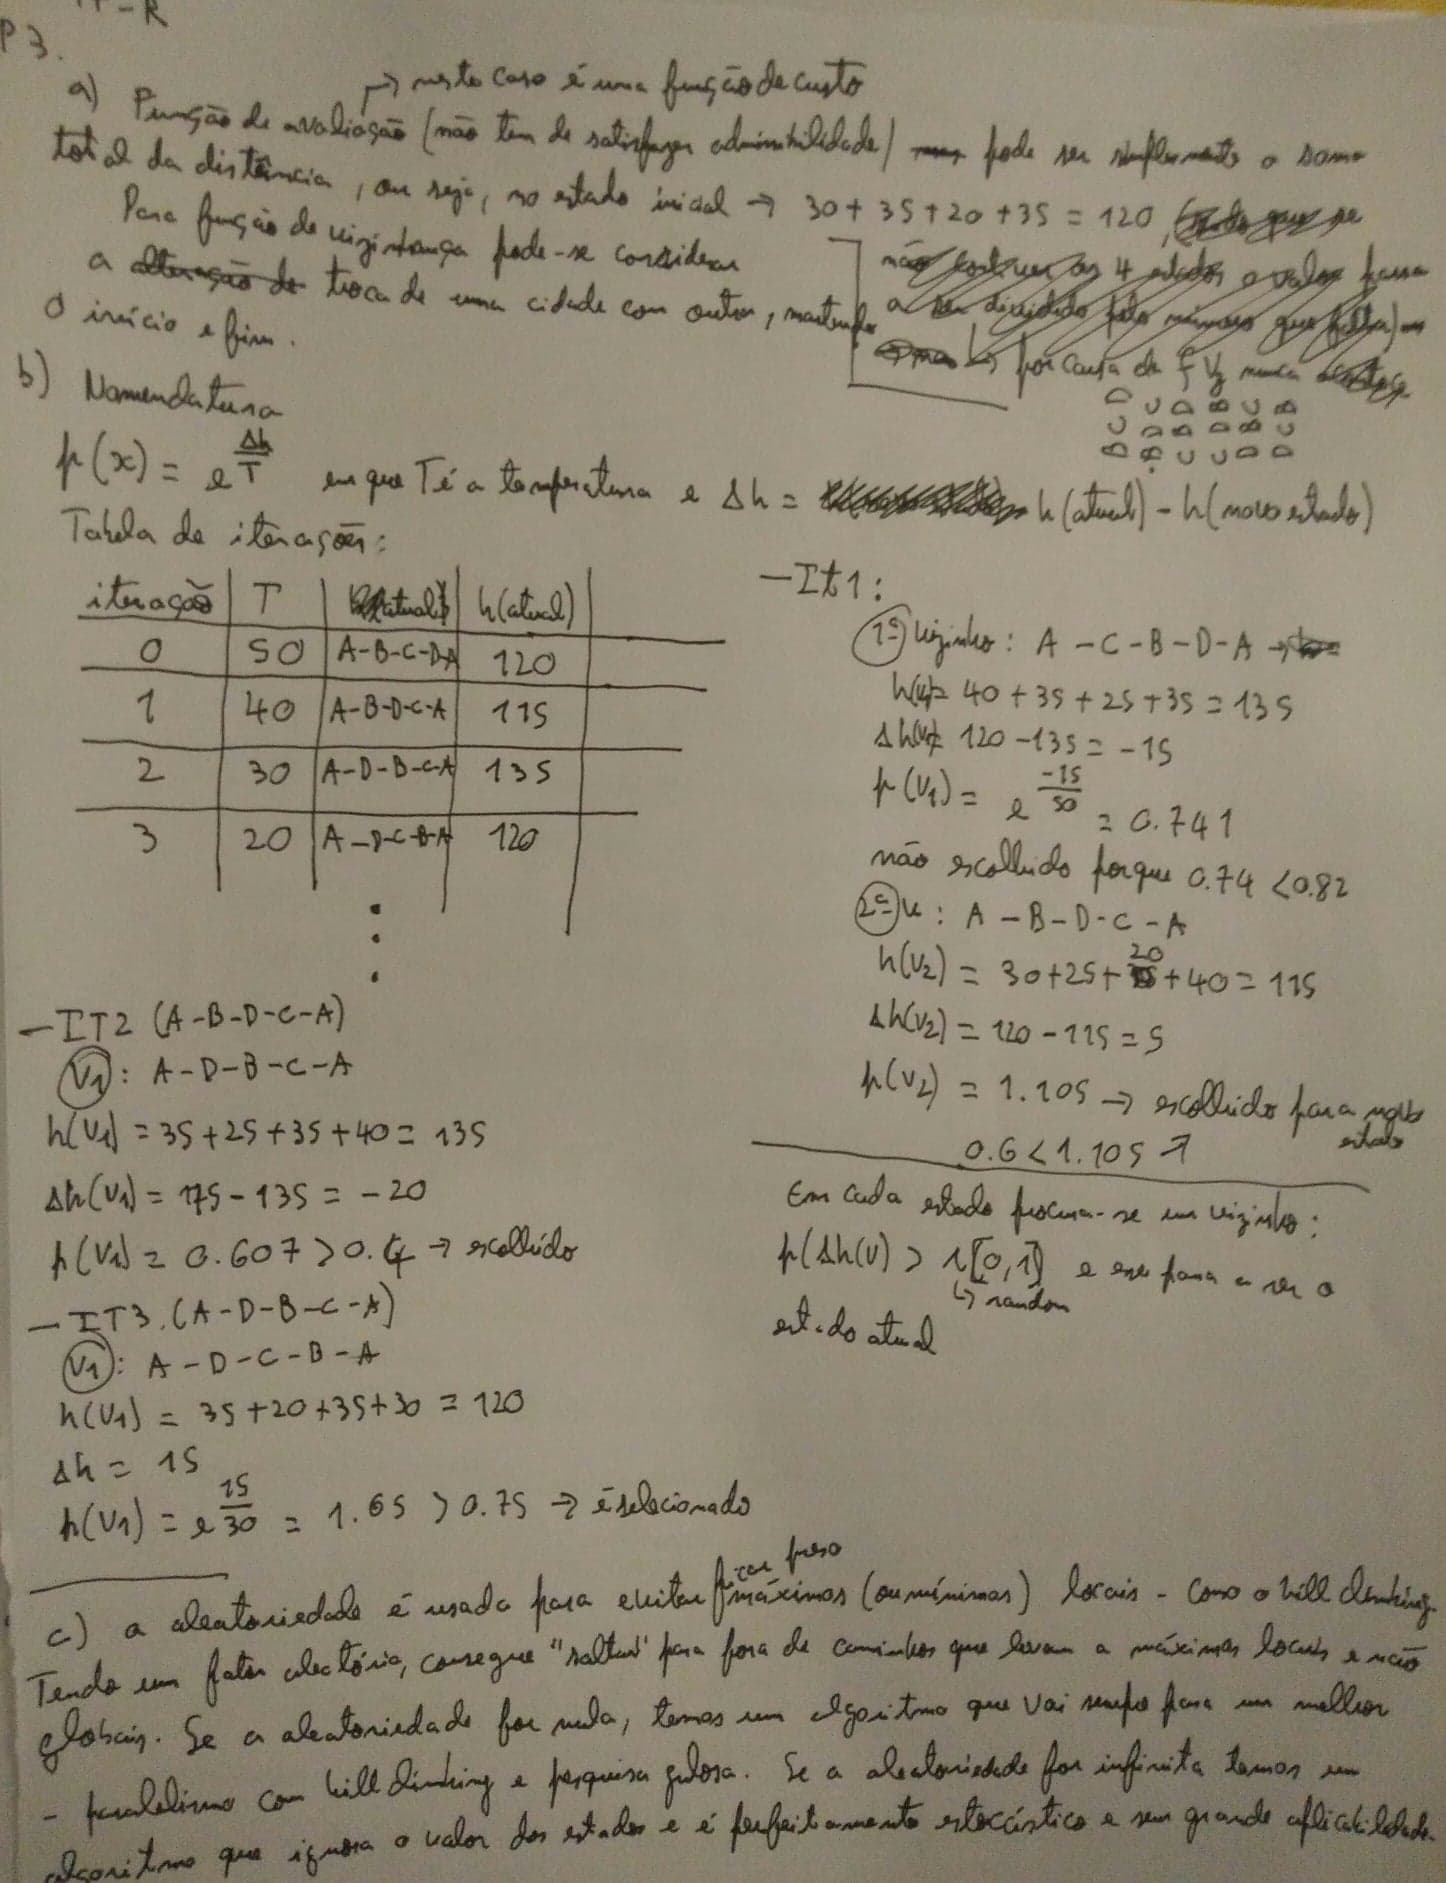 P3.
a) Função de avaliação (não tem de satisfazer admissibilidade) pode ser simplesmente a soma
→ neste caso é uma função de custo
total da distância, ou seja, no estado inicial → 30 + 35 + 20 + 35 = 120,
Para função de vizinhança pode-se considerar
a troca de uma cidade com outra, mantendo
o início e fim.
por causa da f Vz nunca
D C D B C B
C D B D B C
B B C C D D
b) Nomenclatura
p(x) = e^(Δh/T) em que T é a temperatura e Δh = h(atual) - h(novo estado)
Tabela de iterações:
iteração | T | atual | h(atual)
0 | 50 | A-B-C-D-A | 120
1 | 40 | A-B-D-C-A | 115
2 | 30 | A-D-B-C-A | 135
3 | 20 | A-D-C-B-A | 120
- It1:
1º vizinho: A - C - B - D - A →
h(v)= 40 + 35 + 25 + 35 = 135
Δh(v)= 120 - 135 = -15
p(v1) = e^(-15/50) = 0.741
não escolhido porque 0.74 < 0.82
2º v: A - B - D - C - A
h(v2) = 30+25+20+40 = 115
Δh(v2) = 120 - 115 = 5
p(v2) = 1.105 → escolhido para novo estado
0.6 < 1.105
Em cada estado procura-se um vizinho:
p(Δh(v) > r[0,1] e esse passa a ser o
↳ random
estado atual
- IT2 (A-B-D-C-A)
V1: A-D-B-C-A
h(V1) = 35+25+35+40 = 135
Δh(V1) = 115 - 135 = -20
p(V1) = 0.607 > 0.4 → escolhido
- IT3. (A-D-B-C-A)
V1: A-D-C-B-A
h(V1) = 35+20+35+30 = 120
Δh = 15
h(V1) = e^(15/30) = 1.65 > 0.75 → é selecionado
c) a aleatoriedade é usada para evitar ficar preso máximos (ou mínimos) locais - como o hill climbing.
Tendo um fator aleatório, consegue "saltar" para fora de caminhos que levam a máximos locais e não
globais. Se a aleatoriedade for nula, temos um algoritmo que vai sempre para um melhor
- paralelismo com hill climbing e pesquisa gulosa. Se a aleatoriedade for infinita temos um
algoritmo que ignora o valor dos estados e é perfeitamente estocástico e sem grande aplicabilidade.